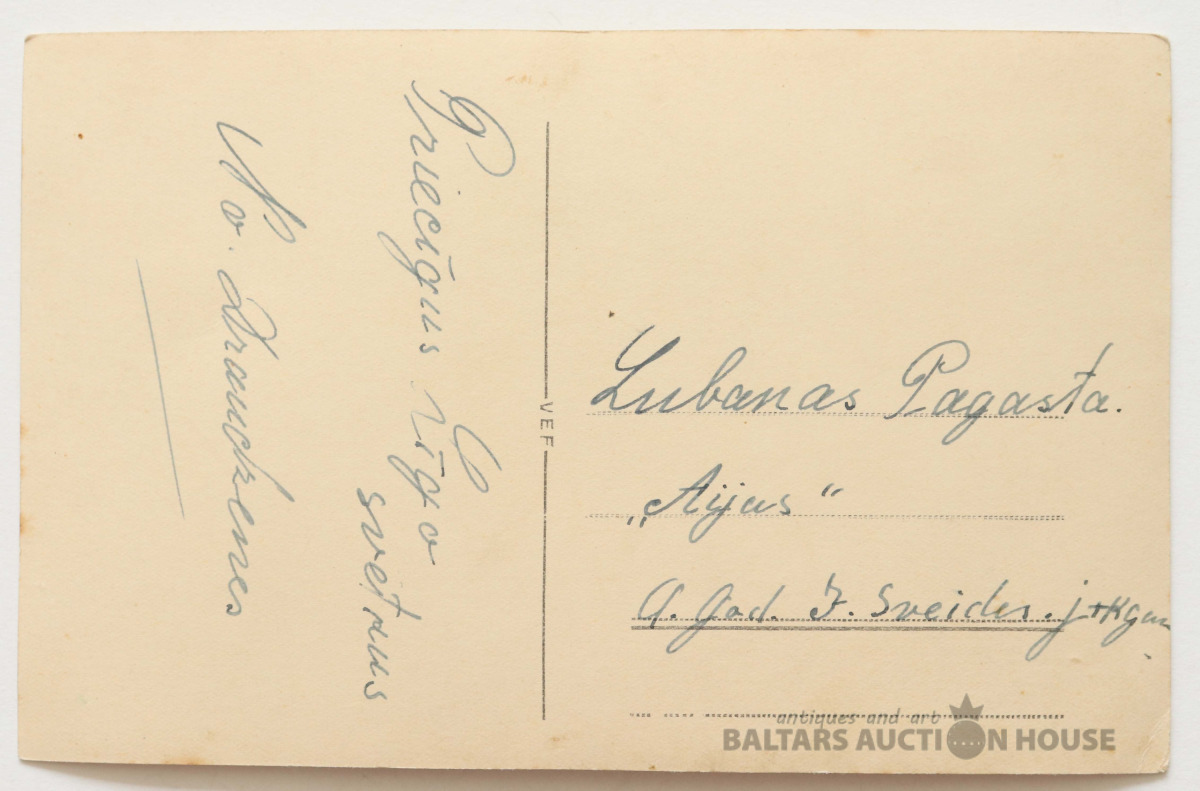 Priecīgus Līgo
svētkus
No. Drauckenes
VEF
Lubanas Pagasta.
„Aijas“
A. God. F. Sveider. j-kgam
antiques and art
BALTARS AUCTION HOUSE